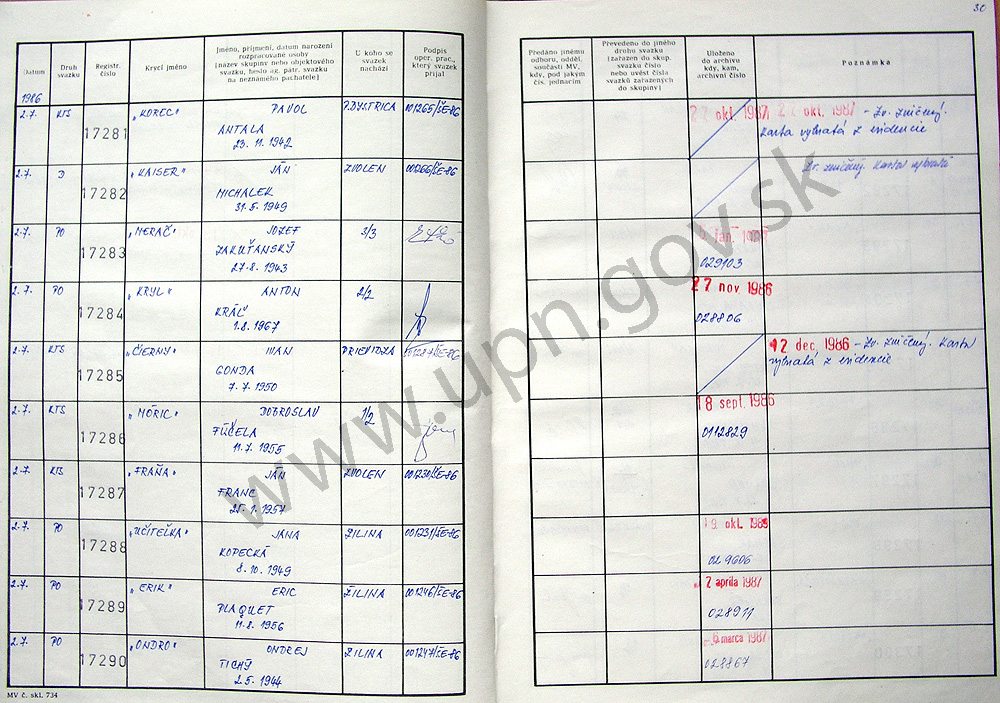 30
Datum
Druh svazku
Registr. číslo
Krycí jméno
Jméno, příjmení, datum narození rozpracované osoby [název skupiny nebo objektového svazku, heslo ag. pátr. svazku na neznámého pachatele]
U koho se svazek nachází
Podpis oper. prac., který svazek přijal
Předáno jinému odboru, odděl. součásti MV, kdy, pod jakým čís. jednacím
Převedeno do jiného druhu svazku [zařazen do skup. svazku číslo nebo uvést čísla svazků zařazených do skupiny]
Uloženo do archivu kdy, kam, archivní číslo
Poznámka
1986
2.7. KTS 17281 „KOREC“ PAVOL B.BYSTRICA 001265/ŠE-86
ANTALA
23. 11. 1942
27 okt. 1987 27 okt. 1987 - Zv. zničený.
Karta vybratá z evidencie
2.7. D 17282 „KAISER“ JÁN ZVOLEN 001266/ŠE-86
MICHALEK
31. 5. 1949
Zv. zničený. Karta vybratá
2.7. PO 17283 „MERAČ“ JOZEF 3/3
ZAKUŤANSKÝ
27. 8. 1943
029103
2.7. PO 17284 „KRYL“ ANTON 2/2
KRÁĽ
1. 8. 1967
27 nov 1986
028806
2.7. KTS 17285 „ČIERNY“ IVAN PRIEVIDZA
GONDA
7. 7. 1950
12 dec. 1986 - Zv. zničený. Karta
vybratá z evidencie
2.7. KTS 17286 „MÔRIC“ DOBROSLAV 1/2
FÚČELA
11. 7. 1955
18 sept. 1986
0112829
2.7. KTS 17287 „FRAŇA“ JÁN ZVOLEN 001230/ŠE-86
FRANC
25. 1. 1957
2.7. PO 17288 „UČITEĽKA“ JANA ŽILINA 001231/ŠE-86
KOPECKÁ
8. 10. 1949
19. okt. 1989
029606
2.7. PO 17289 „ERIK“ ERIC ŽILINA 001246/ŠE-86
PLAQUET
11. 8. 1956
2 apríla 1987
028911
2.7. PO 17290 „ONDRO“ ONDREJ ŽILINA 001247/ŠE-86
TICHÝ
2. 5. 1944
marca 1987
028867
MV č. skl. 734
www.upn.gov.sk